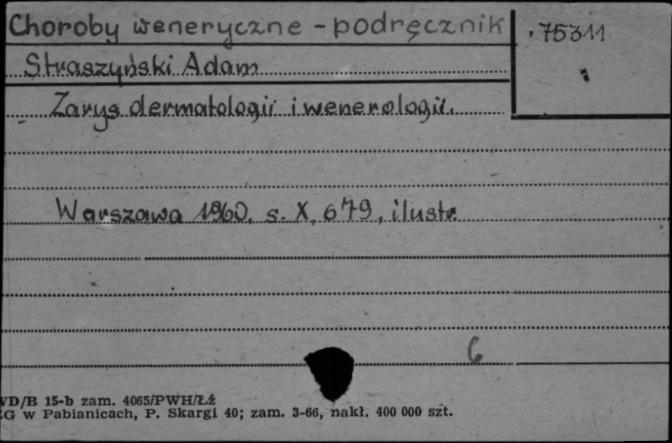 Choroby weneryczne - podręcznik
75311
Straszyński Adam
Zarys dermatologii i wenerologii.
Warszawa 1960. s. X, 679, ilustr.
6
VD/B 15-b zam. 4065/PWH/Łź
G w Pabianicach, P. Skargi 40; zam. 3-66, nakł. 400 000 szt.